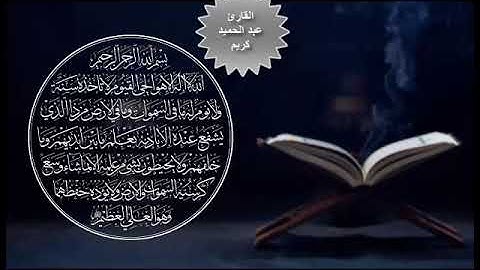 القارئ
عبد الحميد
كريم
بسم الله الرحمن الرحيم
الله لا إله إلا هو الحي القيوم لا تأخذه سنة
ولا نوم له ما في السموات وما في الأرض من ذا الذي
يشفع عنده إلا بإذنه يعلم ما بين أيديهم وما
خلفهم ولا يحيطون بشيء من علمه إلا بما شاء وسع
كرسيه السموات والأرض ولا يؤده حفظهما
وهو العلي العظيم